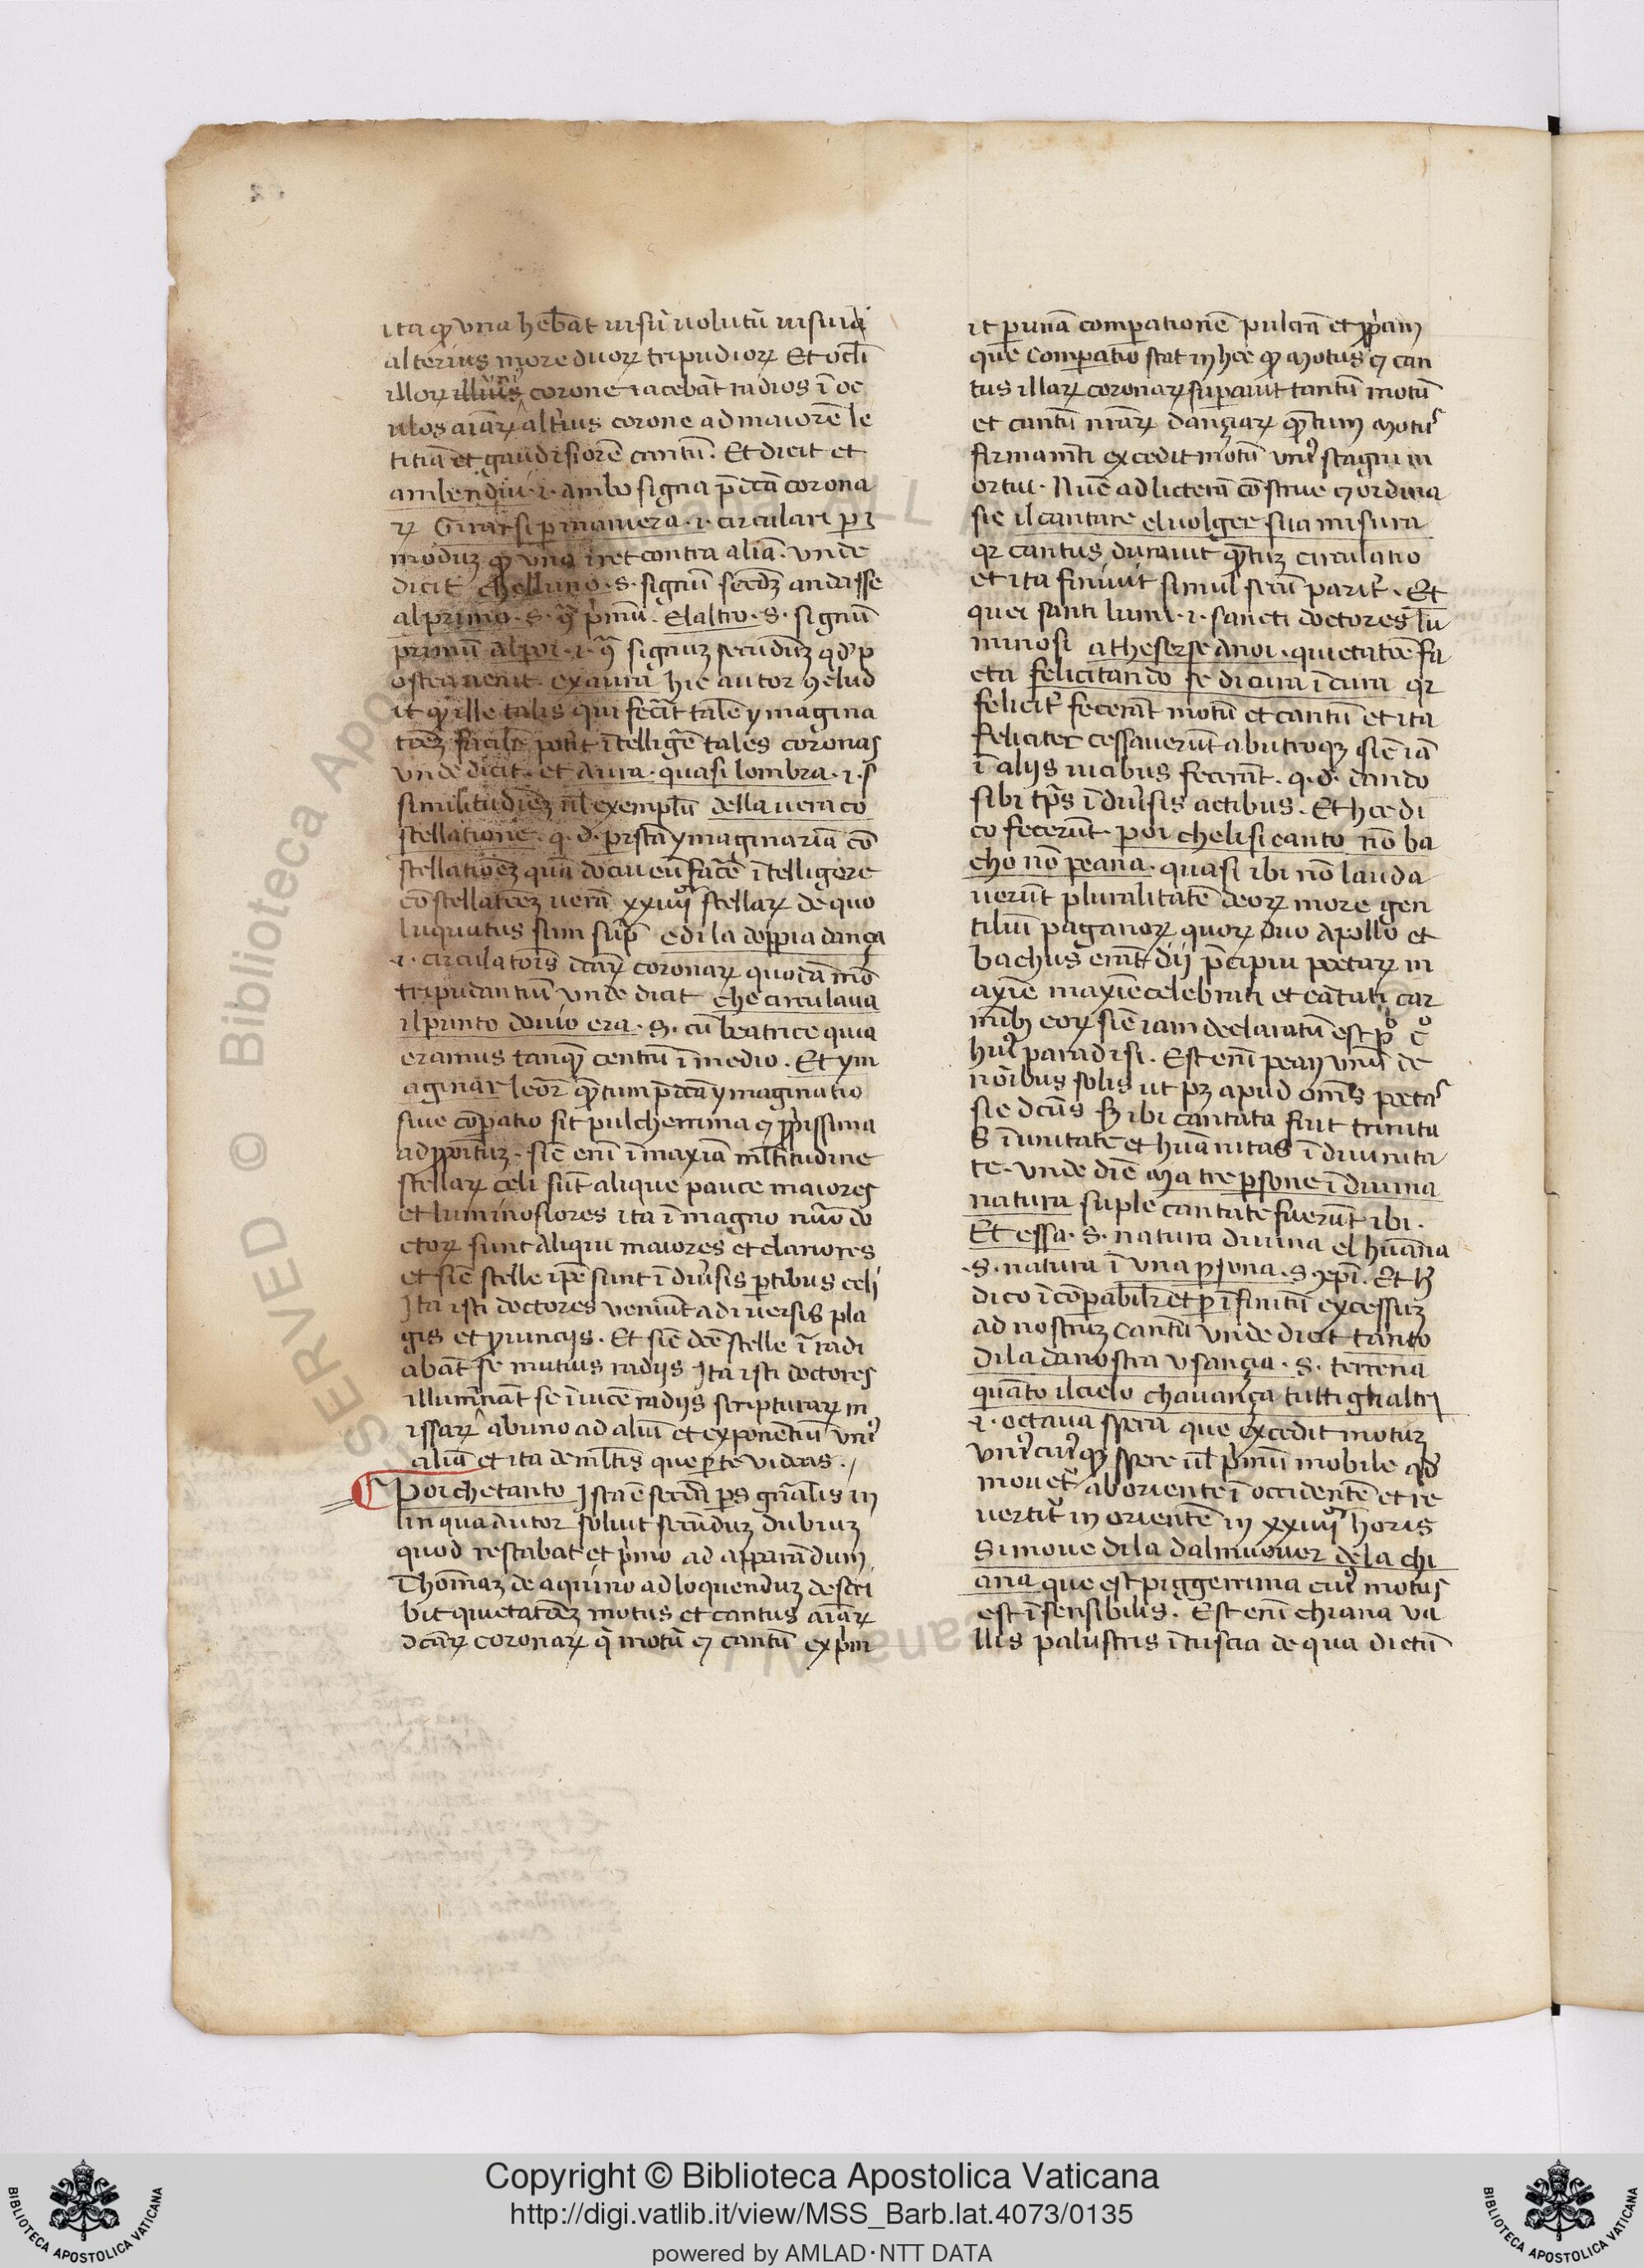 ita qꝫ vna heb̄at uisū uolutū uisui
alterius more duoꝝ tripudioꝝ Et ocl̄i
illoꝝ corone iacebāt radios ī oc
ulos aīaꝝ alteīus corone ad maiorē le
titiā et gaudiosiorē cantū. Et dicit et
ambendui .i. ambo signa p̄dcā corona
ꝝ Girarsi per maniera .i. circulari per
moduꝫ qꝫ vna iret contra aliā. vnde
dicit chelluno .s. signū scd̄ꝫ andasse
al primo .s. p̄mū. Elaltro .s. signū
primū al poi .i. signuꝫ secūduꝫ qd̓ p
ostea uenit. exaura hic autor ꝯclud
it qꝫ ille talis qui fecīt talē ymagina
tōeꝫ facilē potīt ītelligē tales coronas
vnde dicit. et aura. quasi lombra .i.
similitudīeꝫ ul̄ exemplū della uera co
stellatione. q.d. per istā ymaginariā cō
stellatiōeꝫ quā docui eū facē ītelligere
cōstellatōeꝫ uerā xxiiij stellaꝝ de quo
luquutus sum sup̄ edila doppia dança
.i. circulatorīs dcāꝝ coronaꝝ quodā mō
tripudantiū vnde dicit che circulaua
il punto douio era .s. cū beatrice quia
eramus tanqꝫ centrū ī medio. Et ym
aginar leōr qꝫtum p̄dcā ymaginatio
siue cōpatio sit pulcherrima ⁊ ꝓp̄issima
ad ꝓpōituꝫ. sic̄ enī ī maxīa ml̄titudine
stellaꝝ celi sūt alique pauce maiores
et luminosiores ita ī magno nūo do
ctoꝝ sunt aliqui maiores et clariores
et sic̄ stelle ip̄e sunt ī diūsis ꝑtibus celi
Ita isti doctores veniūt adiuersis pla
gis et ꝓuincijs. Et sic̄ dcē stelle īradi
abāt se mutius radijs Ita isti doctores
illumināt se īuicē radijs scripturaꝝ m
issaꝝ abuno ad aliū et exponentiū vni᷒
aliā et ita de ml̄tis que per te videas.
Poi che tanto Ista ē secūda ps gn̄alis in
lin qua autor soluit secunduꝫ dubiuꝫ
quod restabat et p̄mo ad apparandum
Thomaꝫ de aquino ad loquenduꝫ descri
bit quietatōeꝫ motus et cantus aīaꝝ
dcāꝝ coronaꝝ q̄ motū ⁊ cantū exp̄m
it per unā comperationē pulcrā et ꝓp̄iam
que comperatio stat in hoc qꝫ motus ⁊ can
tus illaꝝ coronaꝝ superauit tantū motū
et cantū nr̄aꝝ dançiaꝝ qꝫtum motus
firmamīti excedit motū vni᷒ stagni m
ortui. Nūc ad licterā cōstrue ⁊ ordina
sic il cantare eluolger sua misura
qr cantus durauit qꝫtuꝫ circulatio
et ita finiuit simul secū parit᷒. Et
quei santi lumi .i. sancti doctores lu
minosi atheserse anoi. quietatōe fa
cta felicitando se di cura ī cura qr
felicit᷒ fecerāt motū et cantū et ita
feliciter cessauerūt ab utroqꝫ sic̄ iā
ī alijs uicibus fecerāt. q.d. dando
sibi tp̄s ī diūsis actibus. Et hoc di
co fecerūt poi che li si canto nō ba
cho nō peana. quasi ibi nō lauda
uerūt pluralitatē deoꝝ more gen
tiliū paganoꝝ quoꝝ duo Apollo et
bachus erāt dij p̄cipui poetaꝝ m
axīe maxīe celebrati et cātati car
minibꝫ eoꝝ sic̄ iam declaratū est pº cº
hui᷒ paradisi. Est enī pean vnū de
nōibus solis ut pꝫ apud omīs poetas
sic dcūs sꝫ ibi cantata fuit trinita
s ī unitate et humanitas ī diuinita
te. vnde dic̄ Ma tre persone ī diuina
natura suple cantate fuerūt ibi.
Et essa .s. natura diuina el humana
.s. natura ī una persona .s. xp̄i. Et hꝫ
dico īcōperabil̄r et per īfinitū excessuꝫ
ad nostruꝫ cantū vnde dicit tanto
dila da nostra vsança .s. terrena
quāto ilcielo chauança tutti ghaltri
.i. octaua spera que excedit motuꝫ
vni᷒cui᷒qꝫ spere ul̄ p̄mū mobile qd̓
mouet᷒ ab oriente ī occidentē et re
uertit᷒ in orientē in xxiiij horis
Si moue dila dalmuouer dela chi
ana que est piggerrima cui᷒ motus
est īsensibilis. Est enī chiana va
llis palustris ī tuscia de qua dictū
Copyright © Biblioteca Apostolica Vaticana
http://digi.vatlib.it/view/MSS_Barb.lat.4073/0135
powered by AMLAD·NTT DATA
BIBLIOTECA APOSTOLICA VATICANA
BIBLIOTECA APOSTOLICA VATICANA